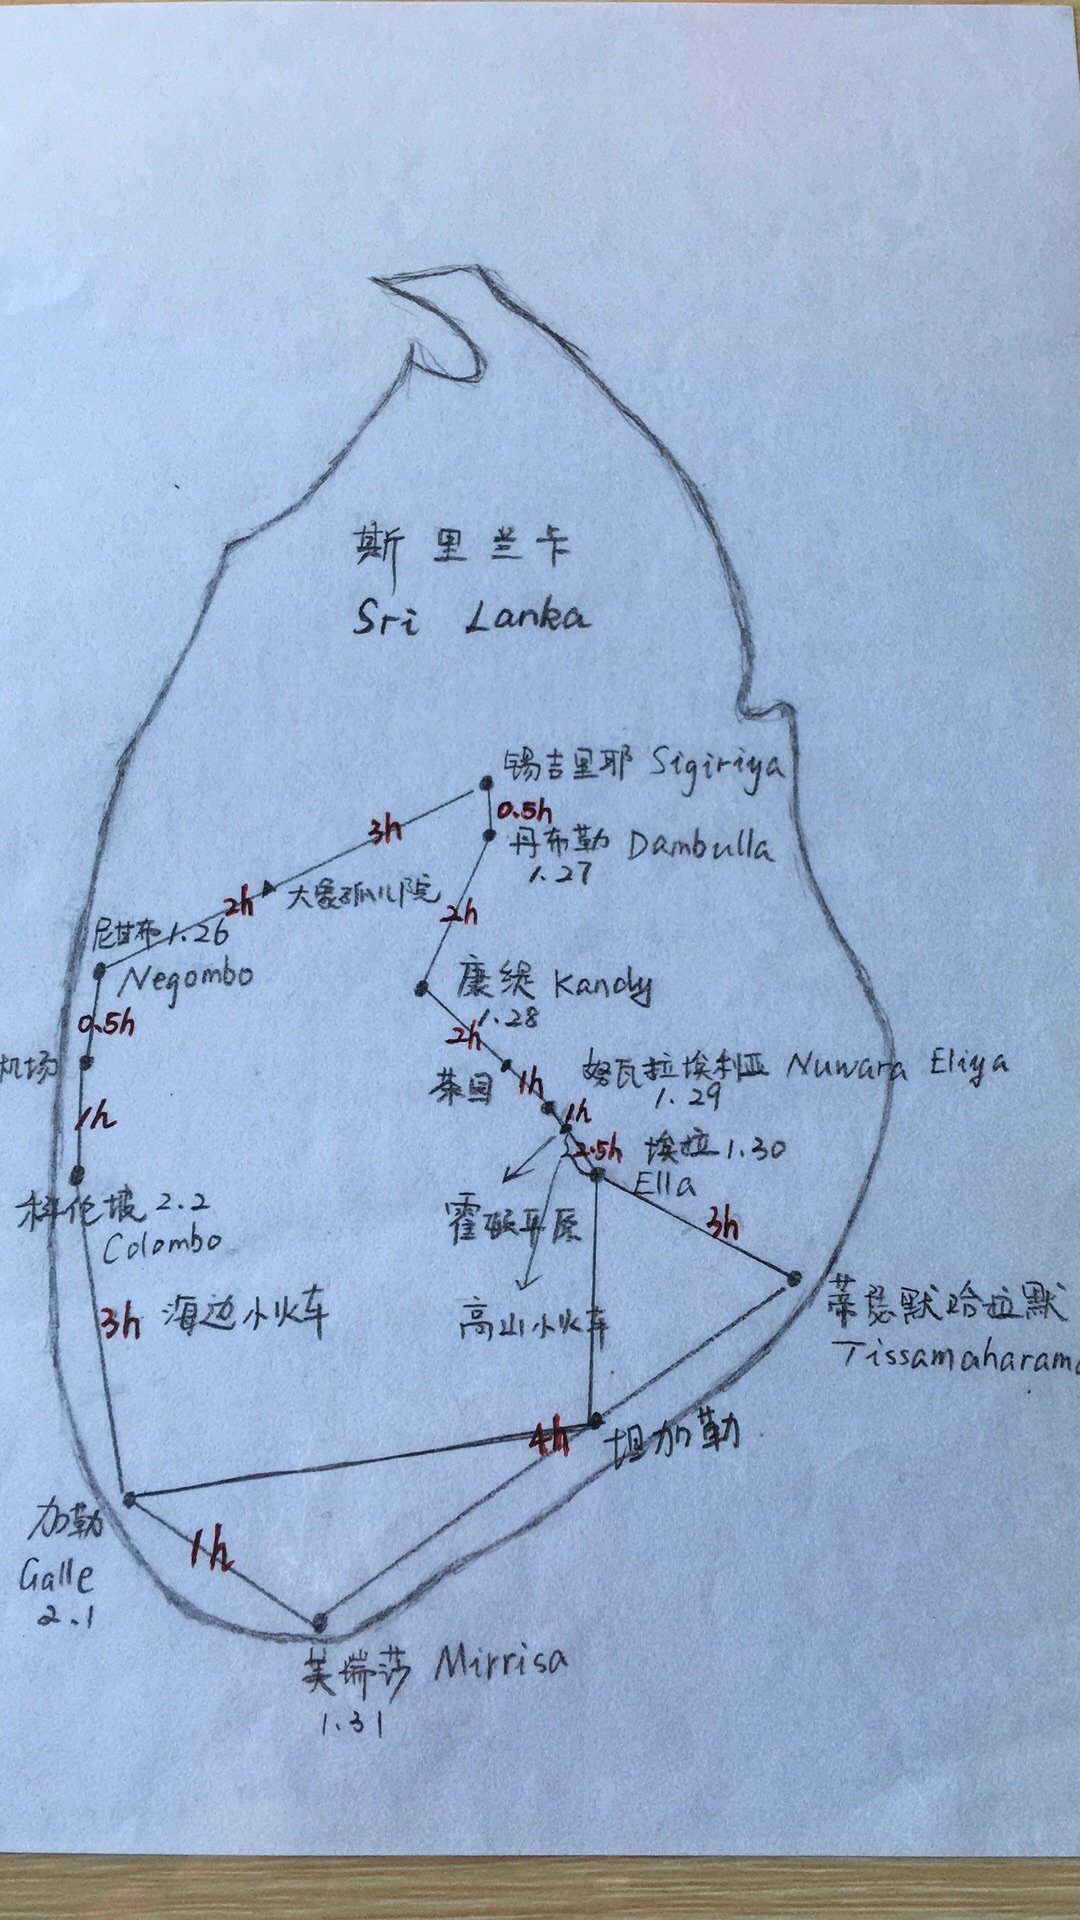 斯里兰卡
Sri Lanka
锡吉里耶 Sigiriya
0.5h
3h
丹布勒 Dambulla
1.27
大象孤儿院
2h
2h
尼甘布 1.26
Negombo
康提 Kandy
1.28
0.5h
2h
机场
茶园
1h
努瓦拉埃利亚 Nuwara Eliya
1.29
1h
1h
2.5h
埃拉 1.30
Ella
科伦坡 2.2
Colombo
霍顿平原
3h
3h 海边小火车
高山小火车
蒂瑟默哈拉默
Tissamaharama
4h
坦加勒
加勒
Galle
2.1
1h
美瑞莎 Mirrisa
1.31